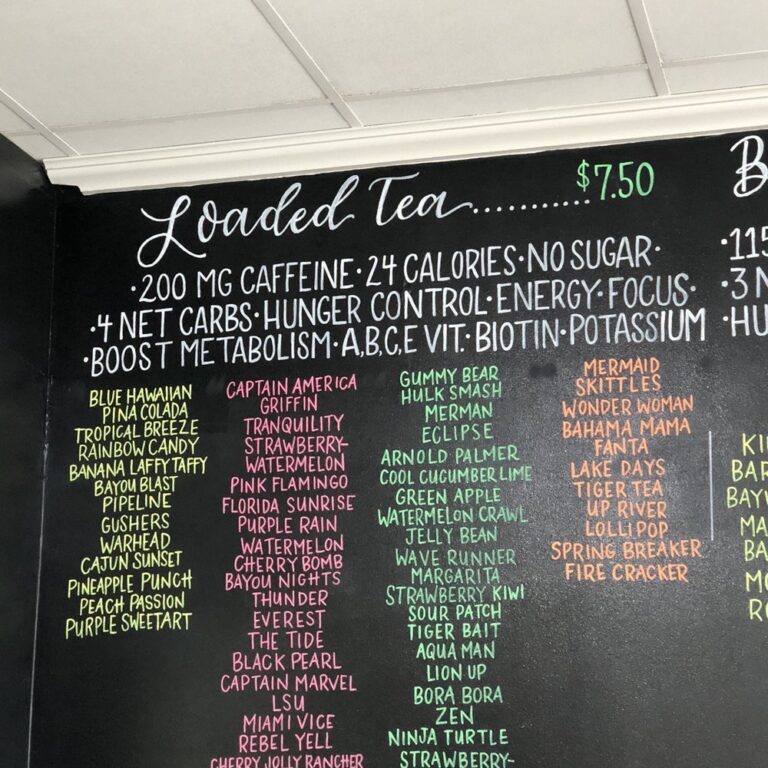 Loaded Tea..........$7.50
·200 MG CAFFEINE·24 CALORIES·NO SUGAR·
·4 NET CARBS·HUNGER CONTROL·ENERGY·FOCUS·
·BOOST METABOLISM·A,B,C,E VIT.·BIOTIN·POTASSIUM
BLUE HAWAIIAN
PINA COLADA
TROPICAL BREEZE
RAINBOW CANDY
BANANA LAFFY TAFFY
BAYOU BLAST
PIPELINE
GUSHERS
WARHEAD
CAJUN SUNSET
PINEAPPLE PUNCH
PEACH PASSION
PURPLE SWEETART
CAPTAIN AMERICA
GRIFFIN
TRANQUILITY
STRAWBERRY-
WATERMELON
PINK FLAMINGO
FLORIDA SUNRISE
PURPLE RAIN
WATERMELON
CHERRY BOMB
BAYOU NIGHTS
THUNDER
EVEREST
THE TIDE
BLACK PEARL
CAPTAIN MARVEL
LSU
MIAMI VICE
REBEL YELL
CHERRY JOLLY RANCHER
GUMMY BEAR
HULK SMASH
MERMAN
ECLIPSE
ARNOLD PALMER
COOL CUCUMBER LIME
GREEN APPLE
WATERMELON CRAWL
JELLY BEAN
WAVE RUNNER
MARGARITA
STRAWBERRY KIWI
SOUR PATCH
TIGER BAIT
AQUA MAN
LION UP
BORA BORA
ZEN
NINJA TURTLE
STRAWBERRY-
MERMAID
SKITTLES
WONDER WOMAN
BAHAMA MAMA
FANTA
LAKE DAYS
TIGER TEA
UP RIVER
LOLLIPOP
SPRING BREAKER
FIRE CRACKER